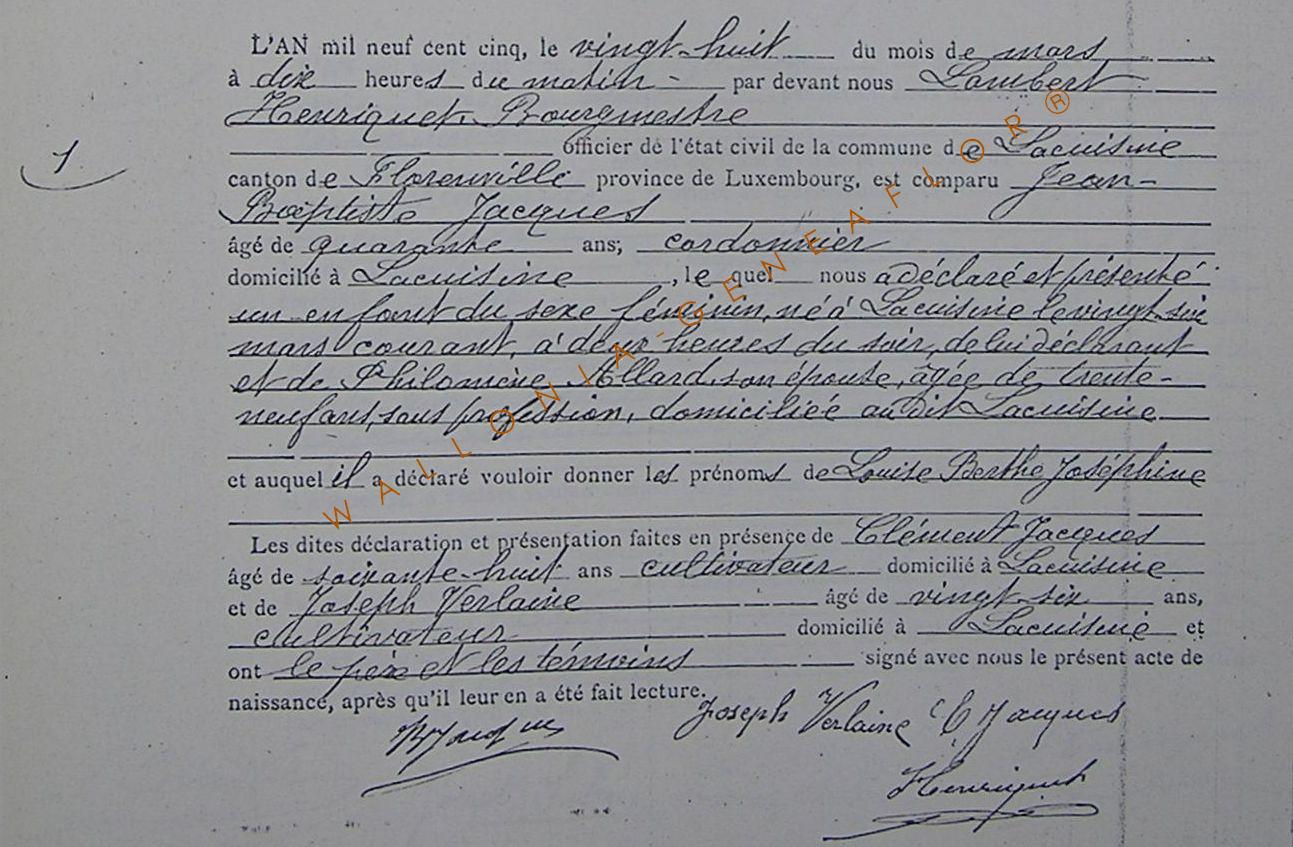 L'AN mil neuf cent cinq, le vingt-huit du mois de mars
à dix heures du matin - par devant nous Lambert
Henriquet, Bourgmestre
officier de l'état civil de la commune de Lacuisine
1
canton de Florenville province de Luxembourg, est comparu Jean-
Baptiste Jacques
âgé de quarante ans, cordonnier
domicilié à Lacuisine, le quel nous a déclaré et présenté
un enfant du sexe féminin, né à Lacuisine le vingt-six
mars courant, à deux heures du soir, de lui déclarant
et de Philomène Allard, son épouse, âgée de trente-
neuf ans, sans profession, domiciliée au dit Lacuisine
et auquel il a déclaré vouloir donner les prénoms de Louise Berthe Joséphine
Les dites déclaration et présentation faites en présence de Clément Jacques
âgé de soixante-huit ans cultivateur domicilié à Lacuisine
et de Joseph Verlaine âgé de vingt-six ans,
cultivateur domicilié à Lacuisine et
ont le père et les témoins signé avec nous le présent acte de
naissance, après qu'il leur en a été fait lecture.
Joseph Verlaine C Jacques
BJacques
Henriquet
WALLONIA-GENEAFLOR®